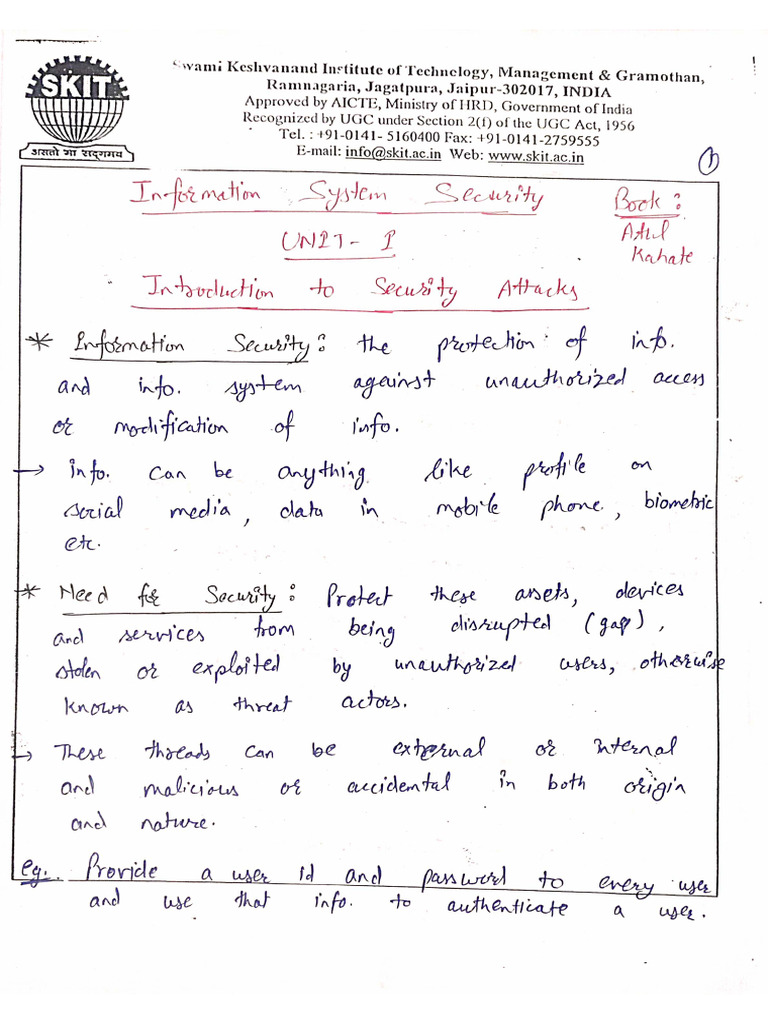 SKIT
असतो मा सद्गमय
Swami Keshvanand Institute of Technology, Management & Gramothan,
Ramnagaria, Jagatpura, Jaipur-302017, INDIA
Approved by AICTE, Ministry of HRD, Government of India
Recognized by UGC under Section 2(f) of the UGC Act, 1956
Tel. : +91-0141- 5160400 Fax: +91-0141-2759555
E-mail: info@skit.ac.in Web: www.skit.ac.in
1
Information System Security
Book:
Atul
Kahate
UNIT- I
Introduction to Security Attacks
* Information Security: the protection of info.
and info. system against unauthorized access
or modification of info.
→ info. can be anything like profile on
social media, data in mobile phone, biometric
etc.
* Need for Security: Protect these assets, devices
and services from being disrupted (gap),
stolen or exploited by unauthorized users, otherwise
known as threat actors.
→ These threads can be external or internal
and malicious or accidental in both origin
and nature.
eg. Provide a user id and password to every user
and use that info. to authenticate a user.